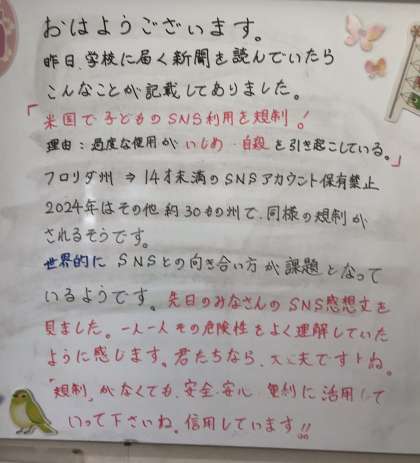 おはようございます。
昨日、学校に届く新聞を読んでいたら
こんなことが記載してありました。
「米国で子どものSNS利用を規制!
理由:過度な使用がいじめ・自殺を引き起こしている。」
フロリダ州 ⇒ 14才未満のSNSアカウント保有禁止
2024年はその他約30もの州で、同様の規制が
されるそうです。
世界的にSNSとの向き合い方が課題となって
いるようです。先日のみなさんのSNS感想文を
見ました。一人一人その危険性をよく理解していた
ように感じます。君たちなら、大丈夫ですよね。
「規制」がなくても、安全・安心・便利に活用して
いって下さいね。信用しています!!